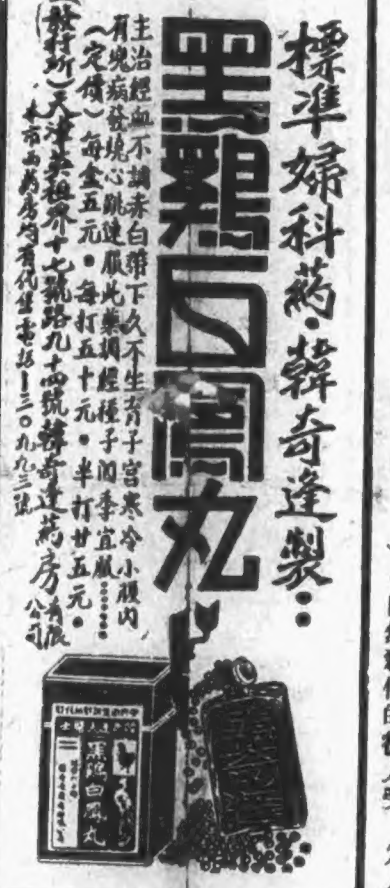 標準婦科藥·韓奇逢製··
黑鷄白鳳丸
主治經血不調赤白帶下久不生育子宮寒冷小腹內
有塊病發燒心跳速服此藥調經種子四季宜服……
(定價)每盒五元·每打五十元·半打廿五元·
(發行所)天津英租界十七號路九十四號韓奇逢藥房有限公司
本市西藥房均有代售電話三〇九九三號
黑鷄白鳳丸
韓奇逢